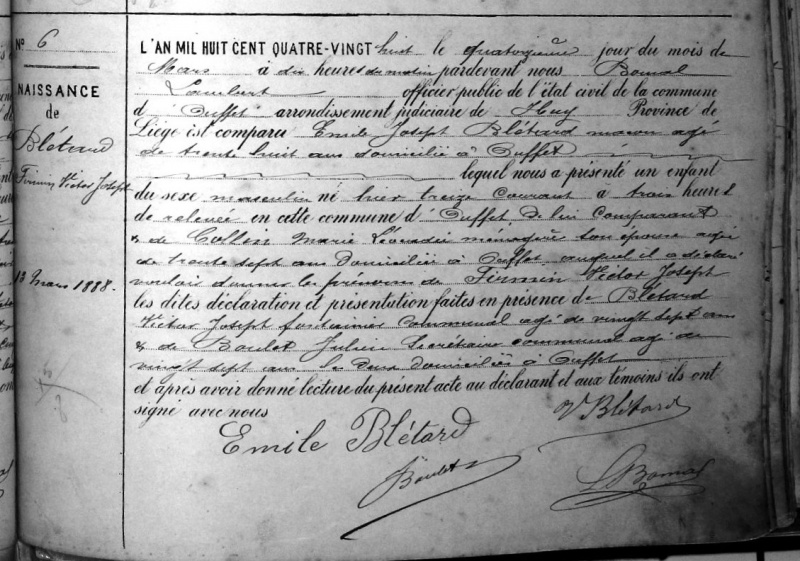 N° 6
NAISSANCE
de
Blétard
Firmin Victor Joseph
13 mars 1888.
L'AN MIL HUIT CENT QUATRE-VINGT huit le quatorzième jour du mois de
Mars à dix heures du matin pardevant nous Bomal
Lambert officier public de l'état civil de la commune
d' Ouffet arrondissement judiciaire de Huy Province de
Liège est comparu Emile Joseph Blétard maçon agé
de trente huit ans domicilié à Ouffet
lequel nous a présenté un enfant
du sexe masculin né hier treize courant à trois heures
de relevée en cette commune d' Ouffet, de lui Comparant
& de Collin Marie Léonadie ménagère son épouse agée
de trente sept ans domiciliée à Ouffet auquel il a déclaré
vouloir donner les prénoms de Firmin Victor Joseph
les dites déclaration et présentation faites en présence de Blétard
Victor Joseph fontainier communal agé de vingt sept ans
& de Boulet Julien Secrétaire communal agé de
vingt sept ans les deux domiciliés à Ouffet
et après avoir donné lecture du présent acte au déclarant et aux témoins ils ont
signé avec nous
V Blétard
Emile Blétard
Boulet
L Bomal